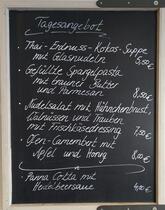 Tagesangebot
• Thai-Erdnuss-Kokos-Suppe
mit Glasnudeln 5,50€
• Gefüllte Spargelpasta
mit brauner Butter
und Parmesan 8,50€
• Nudelsalat mit Hühnchenbrust,
Walnüssen und Trauben
mit Frischkäsedressing 7,50€
• Ofen-Camembert mit
Apfel und Honig 8,00€
• Panna Cotta mit
Heidelbeersauce 4,00€